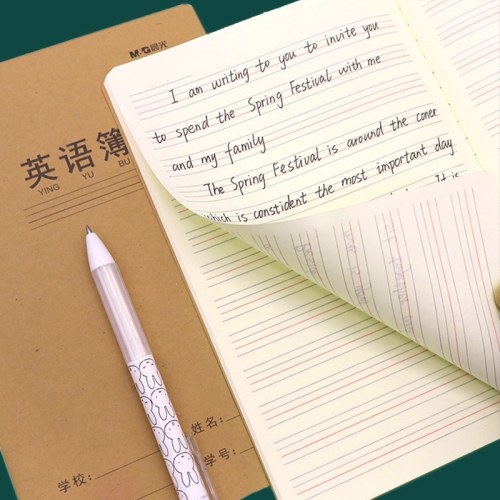 M&G晨光
英语簿
YING YU BU
学校:
姓名:
学号:
I am writing to you to invite you
to spend the Spring Festival with me
and my family
The Spring Festival is around the coner
which is constident the most important day
It is